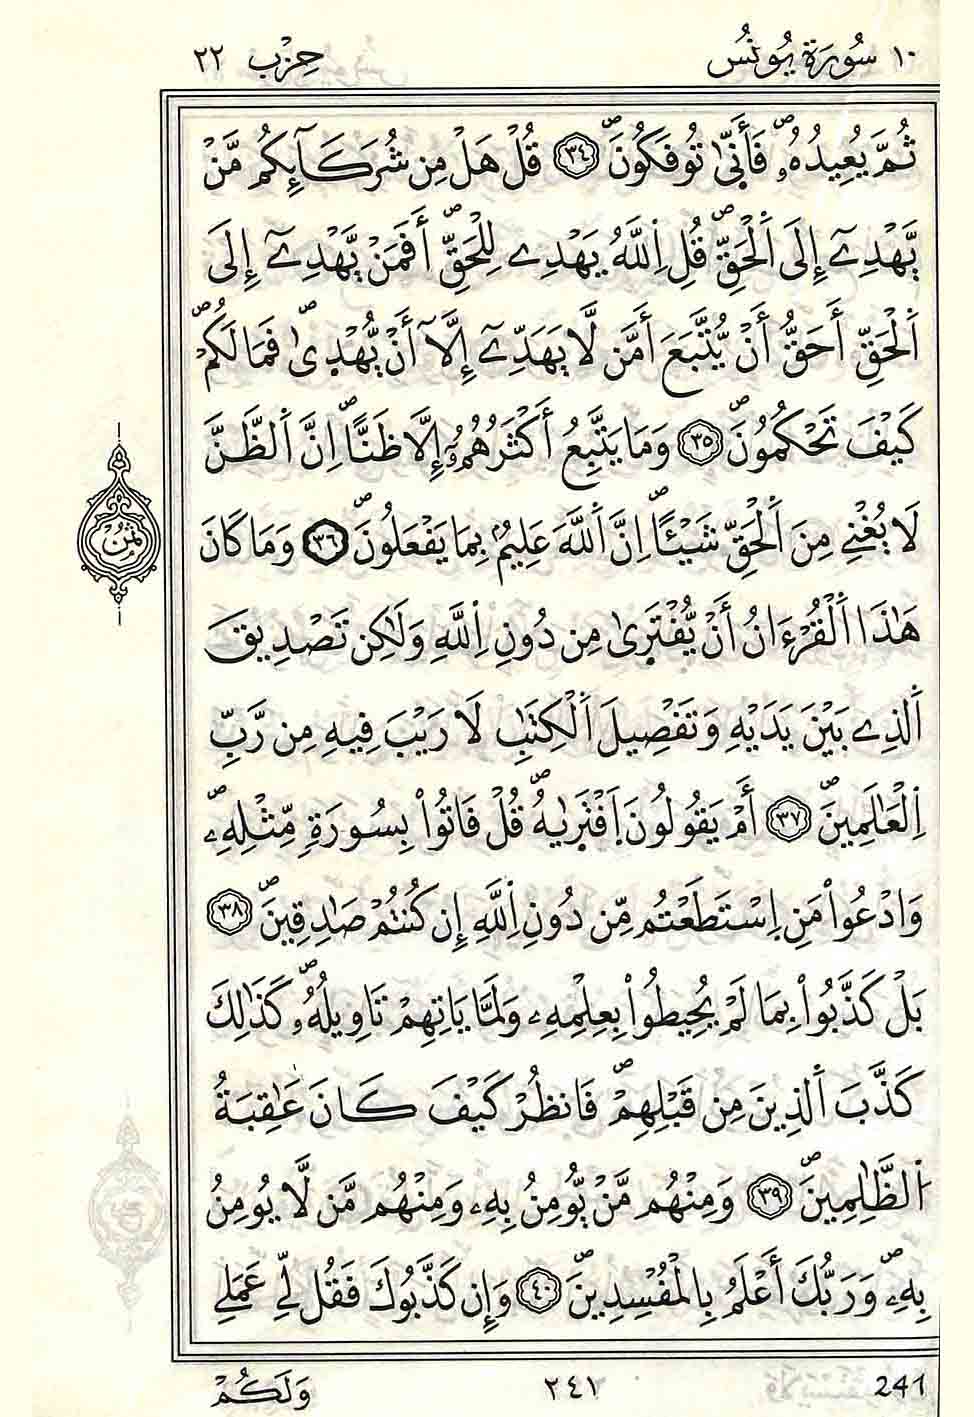 ١٠ سُورَةُ يُونُسَ حِزْب ٢٢
ثُمَّ يُعِيدُهُۥۖ فَأَنّ۪يٰ تُوفَكُونَۖ ٣٤ قُلْ هَلْ مِن شُرَكَآئِكُم مَّنْ
يَّهْدِےٓ إِلَى اَ۬لْحَقِّۖ قُلِ اِ۬للَّهُ يَهْدِے لِلْحَقِّۖ أَفَمَنْ يَّهْدِےٓ إِلَى
اَ۬لْحَقِّ أَحَقُّ أَنْ يُّتَّبَعَ أَمَّن لَّا يَهَدِّےٓ إِلَّآ أَنْ يُّهْد۪ىٰۖ فَمَا لَكُمْۖ
كَيْفَ تَحْكُمُونَۖ ٣٥ وَمَا يَتَّبِعُ أَكْثَرُهُمُۥٓ إِلَّا ظَنّاًۖ اِنَّ اَ۬لظَّنَّ
لَا يُغْنِے مِنَ اَ۬لْحَقِّ شَيْـٔاًۖ اِنَّ اَ۬للَّهَ عَلِيمُۢ بِمَا يَفْعَلُونَۖ ٣٦ وَمَا كَانَ
هَٰذَا اَ۬لْقُرْءَانُ أَنْ يُّفْتَر۪ىٰ مِن دُونِ اِ۬للَّهِ وَلَٰكِن تَصْدِيقَ
اَ۬لذِے بَيْنَ يَدَيْهِ وَتَفْصِيلَ اَ۬لْكِتَٰبِ لَا رَيْبَ فِيهِ مِن رَّبِّ
اِ۬لْعَٰلَمِينَۖ ٣٧ أَمْ يَقُولُونَ اَ۪فْتَر۪يٰهُۖ قُلْ فَاتُواْ بِسُورَةٖ مِّثْلِهِۦۖ
وَادْعُواْ مَنِ اِ۪سْتَطَعْتُم مِّن دُونِ اِ۬للَّهِ إِن كُنتُمْ صَٰدِقِينَۖ ٣٨
بَلْ كَذَّبُواْ بِمَا لَمْ يُحِيطُواْ بِعِلْمِهِۦ وَلَمَّا يَاتِهِمْ تَاوِيلُهُۥۖ كَذَٰلِكَ
كَذَّبَ اَ۬لذِينَ مِن قَبْلِهِمْۖ فَانظُرْ كَيْفَ كَانَ عَٰقِبَةُ
اُ۬لظَّٰلِمِينَۖ ٣٩ وَمِنْهُم مَّنْ يُّومِنُ بِهِۦ وَمِنْهُم مَّن لَّا يُومِنُ
بِهِۦۖ وَرَبُّكَ أَعْلَمُ بِالْمُفْسِدِينَۖ ٤٠ وَإِن كَذَّبُوكَ فَقُل لِّے عَمَلِے
ثُمُن
وَلَكُمْ ٢٤١ 241